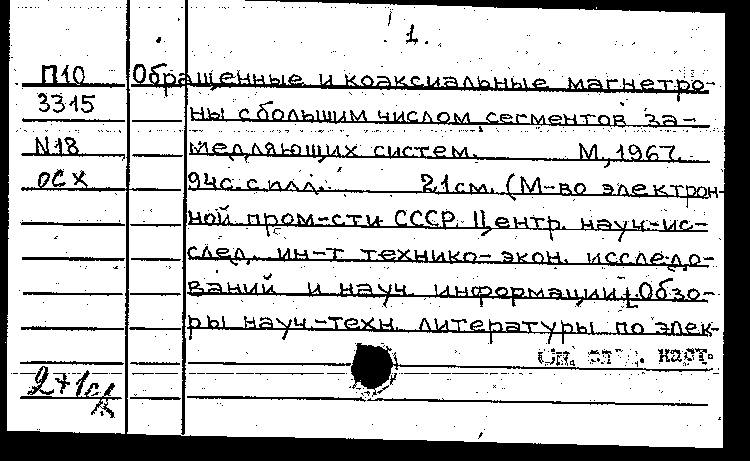 1.
П10 Обращенные и коаксиальные магнетро-
3315 ны с большим числом сегментов за-
N18 медляющих систем. М, 1967.
осх 94с. с илл. 21см. (М-во электрон-
ной пром-сти СССР. Центр. науч.-ис-
след. ин-т технико-экон. исследо-
ваний и науч. информации). Обзо-
ры науч.-техн. литературы по элек-
См. след. наст.
2+1